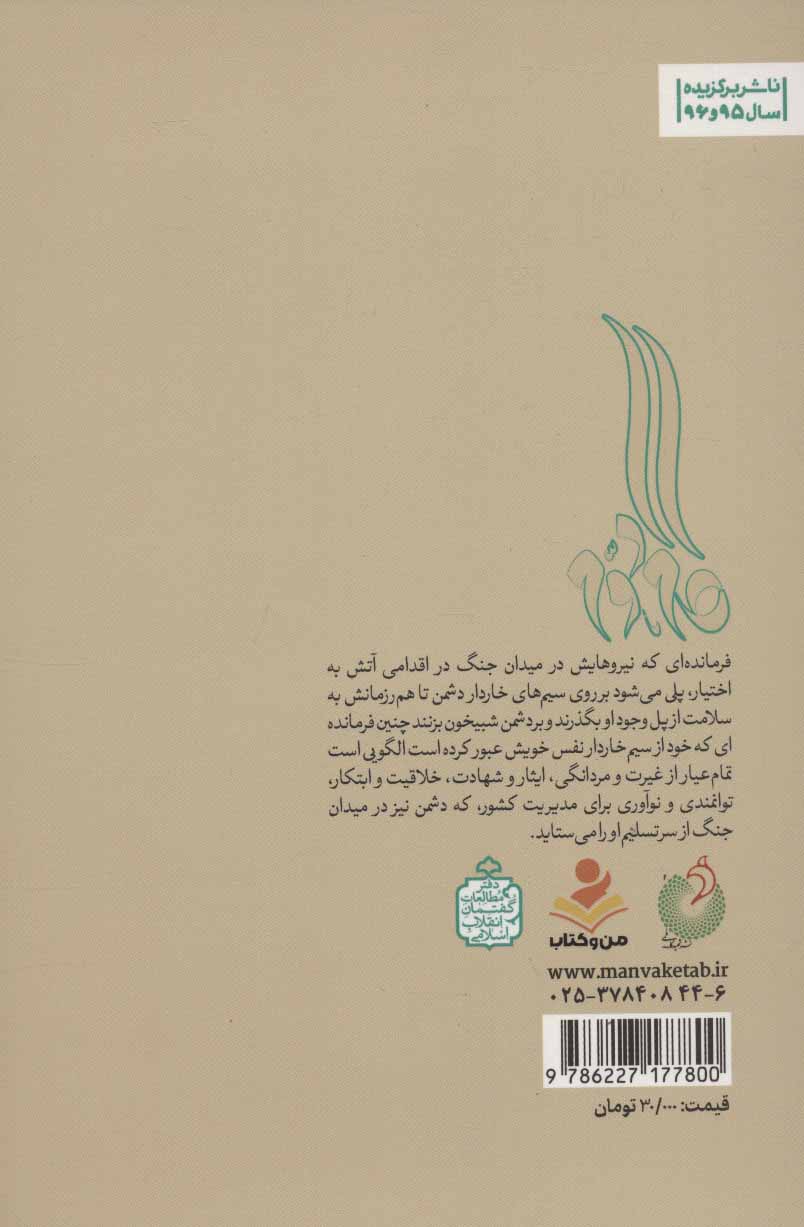 ناشر برگزیده
سال ۹۵ و ۹۶
فرمانده‌ای که نیروهایش در میدان جنگ در اقدامی آتش به
اختیار، پلی می‌شود بر روی سیم‌های خاردار دشمن تا هم‌رزمانش به
سلامت از پل وجود او بگذرند و بر دشمن شبیخون بزنند چنین فرمانده
ای که خود از سیم خاردار نفس خویش عبور کرده است الگویی است
تمام عیار از غیرت و مردانگی، ایثار و شهادت، خلاقیت و ابتکار،
توانمندی و نوآوری برای مدیریت کشور، که دشمن نیز در میدان
جنگ از سر تسلیم او را می‌ستاید.
دفتر
مطالعات
گفتمان
انقلاب
اسلامی
من و کتاب
www.manvaketab.ir
۰۲۵-۳۷۸۴۰۸ ۴۴-۶
9 786227 177800
قیمت: ۳۰/۰۰۰ تومان